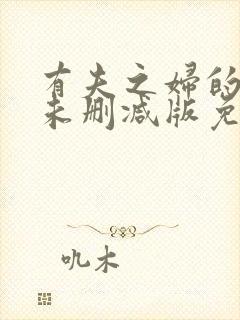 有夫之婦的
未删减版免
吼木